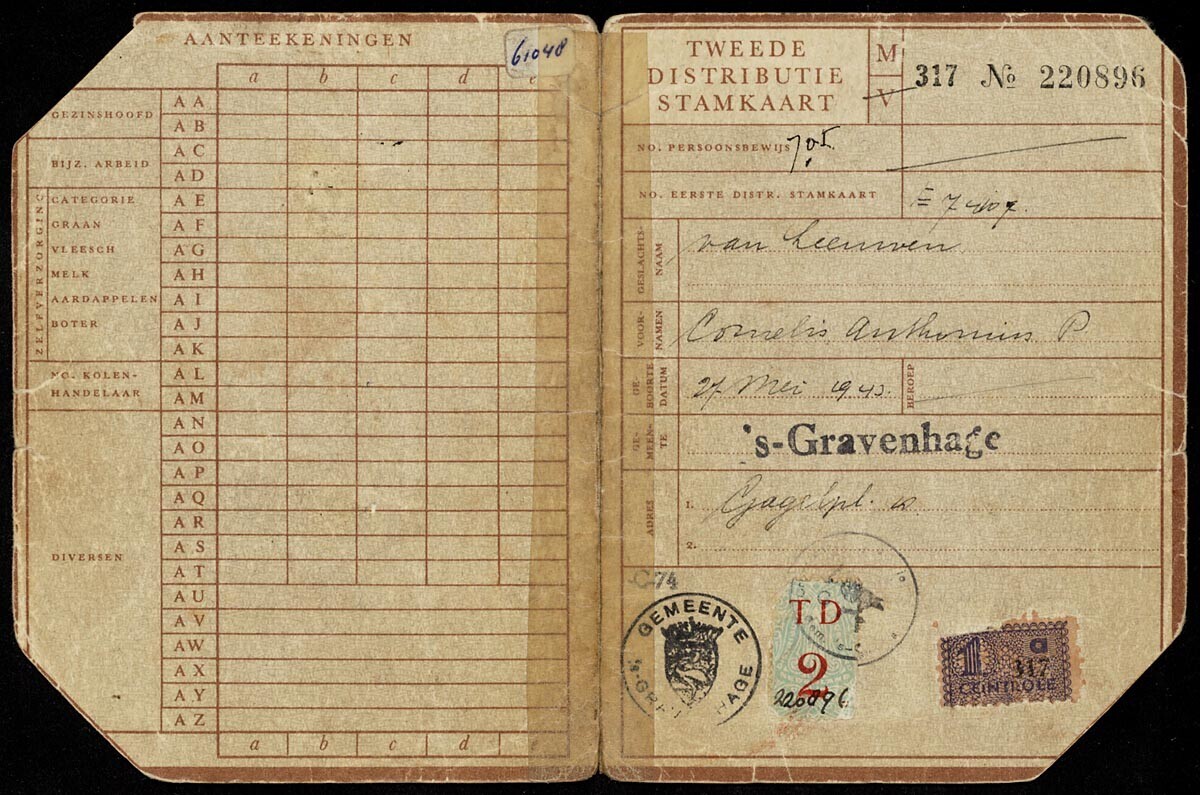 AANTEEKENINGEN
61048
a b c d e
GEZINSHOOFD
A A
A B
BIJZ. ARBEID
A C
A D
ZELFVERZORGING
CATEGORIE
A E
GRAAN
A F
VLEESCH
A G
MELK
A H
AARDAPPELEN
A I
BOTER
A J
A K
NO. KOLEN-
HANDELAAR
A L
A M
DIVERSEN
A N
A O
A P
A Q
A R
A S
A T
A U
A V
A W
A X
A Y
A Z
a b c d e
TWEEDE
DISTRIBUTIE
STAMKAART
M
V
317 № 220896
NO. PERSOONSBEWIJS
NO. EERSTE DISTR. STAMKAART
GESLACHTS-
NAAM
van Leeuwen
VOOR-
NAMEN
Cornelis Anthonius P
GE-
BOORTE
DATUM
27 Mei 1943.
BEROEP
GE-
MEEN-
TE
's-Gravenhage
ADRES
1.
2.
C74
GEMEENTE
's-GRAVENHAGE
TD
2
220896
1 a
317
CONTROLE